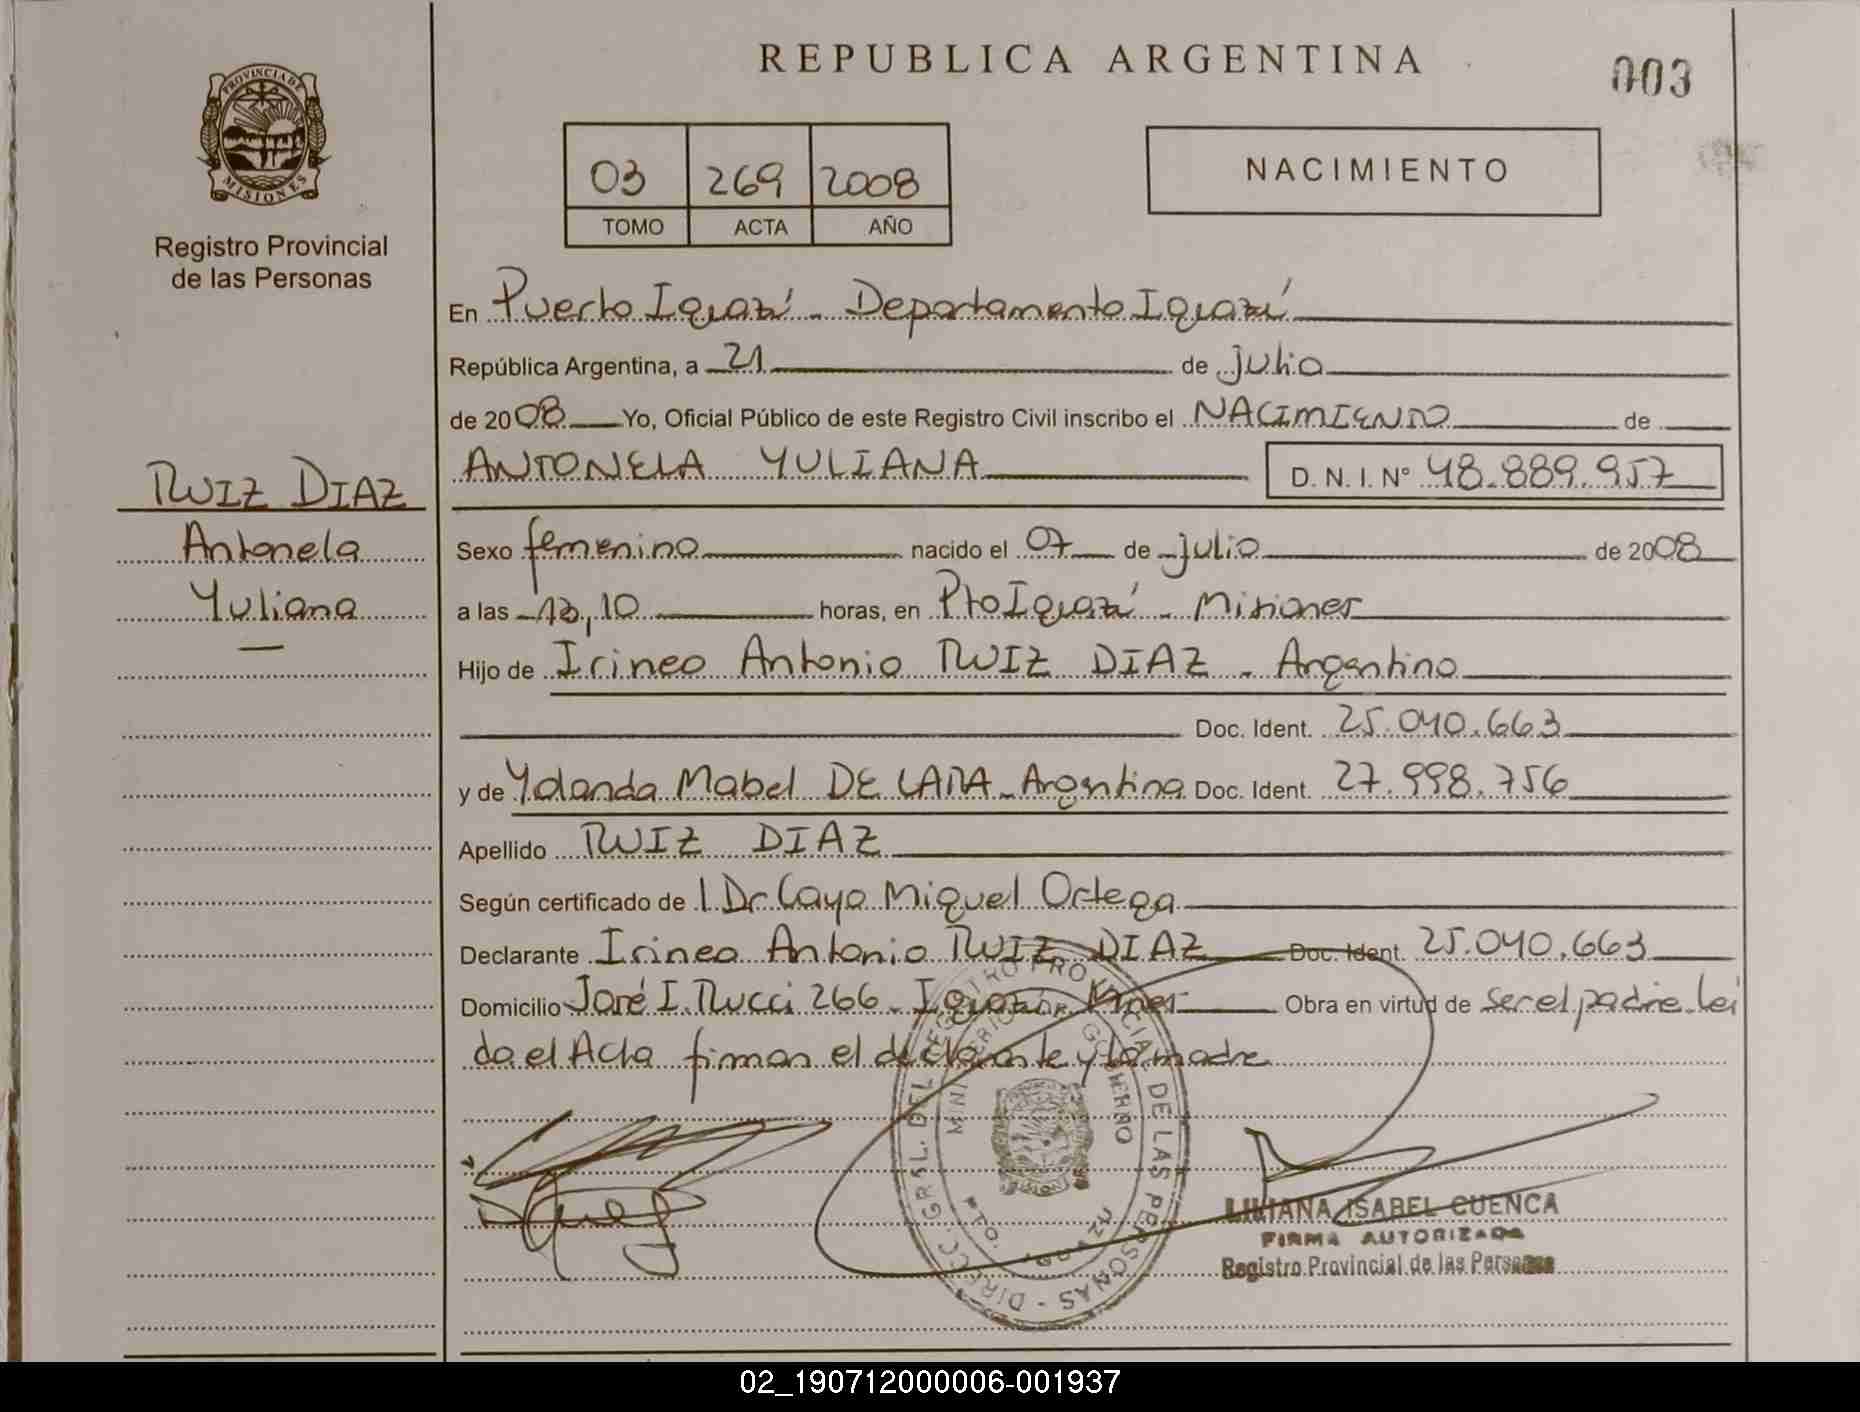 REPUBLICA ARGENTINA
003
PROVINCIA DE
MISIONES
Registro Provincial
de las Personas
03 269 2008
TOMO ACTA AÑO
NACIMIENTO
En Puerto Iguazú - Departamento Iguazú
República Argentina, a 21 de julio
de 2008 Yo, Oficial Público de este Registro Civil inscribo el NACIMIENTO de
ANTONELA YULIANA D. N. I. Nº 48.889.957
RUIZ DIAZ
Antonela
Yuliana
Sexo femenino nacido el 07 de julio de 2008
a las 13,10 horas, en Pto Iguazú - Misiones
Hijo de Irineo Antonio RUIZ DIAZ - Argentino
Doc. Ident. 25.040.663
y de Yolanda Mabel DE LARA - Argentina Doc. Ident. 27.998.756
Apellido RUIZ DIAZ
Según certificado de l Dr Cayo Miguel Ortega
Declarante Irineo Antonio RUIZ DIAZ Doc. Ident. 25.040.663
Domicilio José I. Rucci 266 - Iguazú - Mnes Obra en virtud de ser el padre. Lei
da el Acta firman el declarante y la madre
DIRECC. GRAL. DEL REGISTRO PROVINCIAL DE LAS PERSONAS
MINISTERIO DE GOBIERNO
MISIONES
LILIANA ISABEL CUENCA
FIRMA AUTORIZADA
Registro Provincial de las Personas
02_190712000006-001937